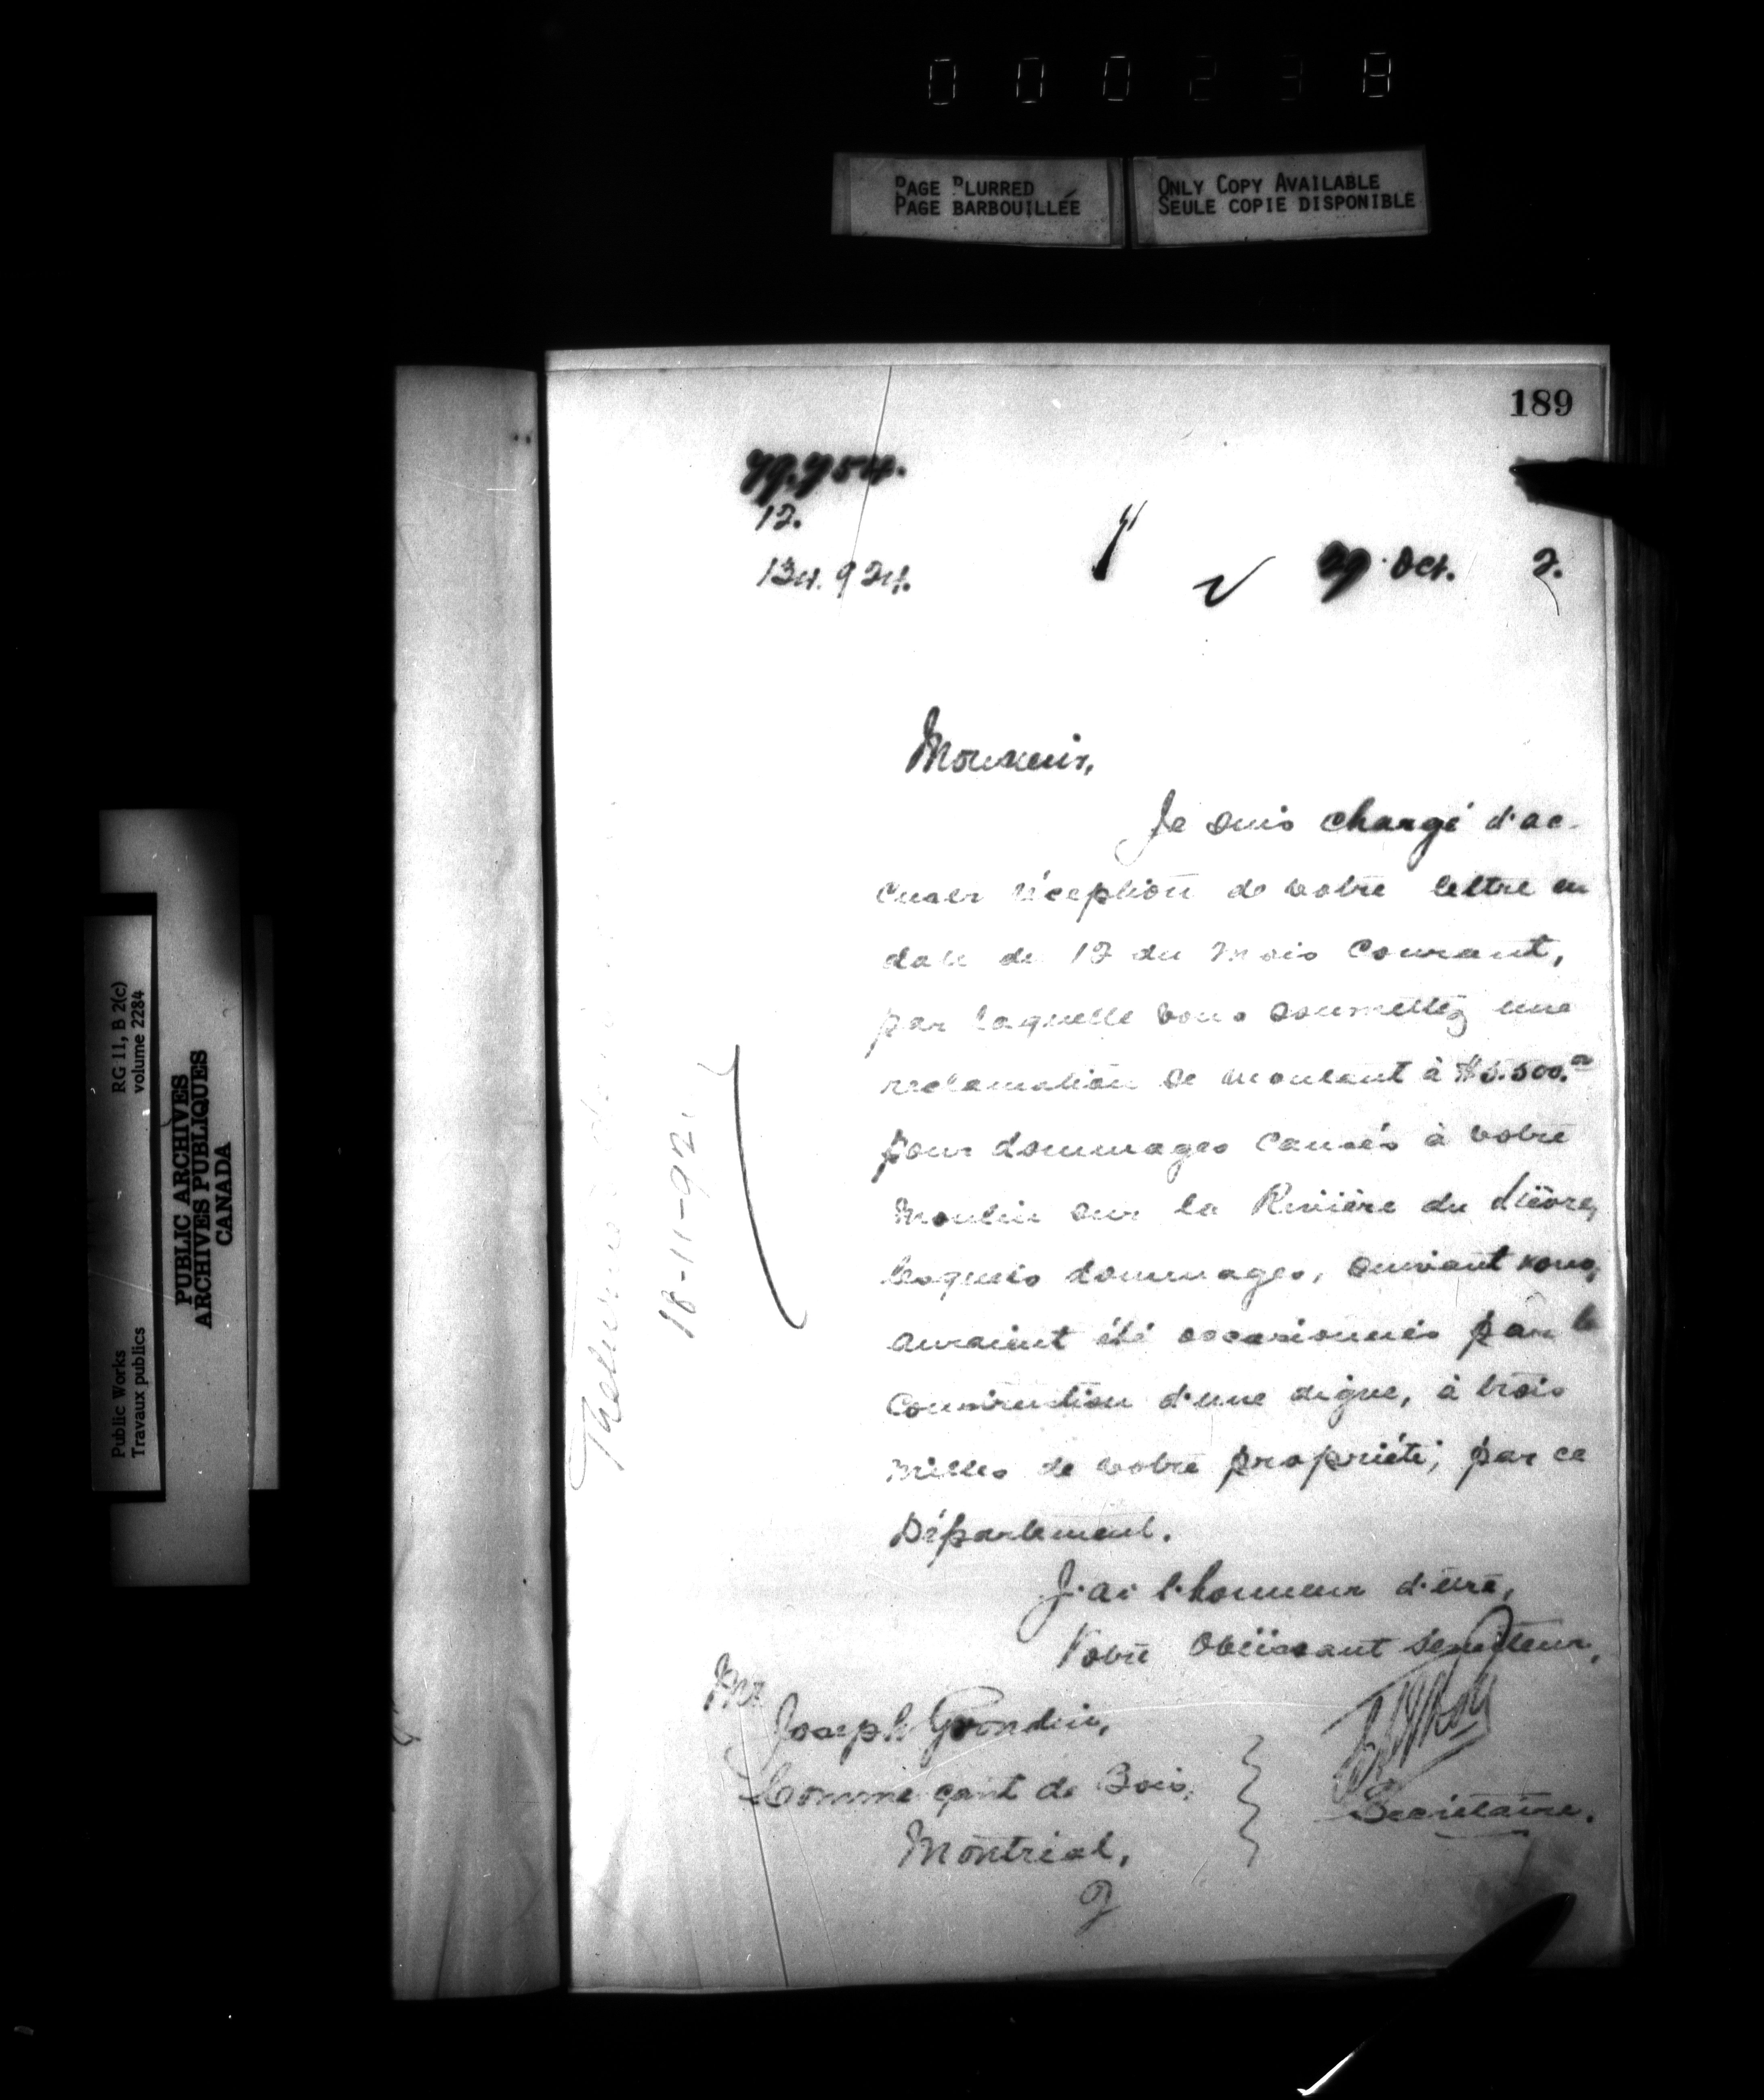 000238
PAGE BLURRED
PAGE BARBOUILLÉE
ONLY COPY AVAILABLE
SEULE COPIE DISPONIBLE
189
12.
134.924.
29 Oct. 2.
Monsieur,
Je suis chargé d'ac-
cuser réception de votre lettre en
date de 12 du mois courant,
par laquelle vous soumettez une
reclamation se montant à $5.500.00
pour dommages causés à votre
moulin sur la Rivière du Lièvre,
lesquels dommages, suivant vous,
auraient été occasionnés par la
construction d'une digue, à trois
milles de votre propriété, par ce
Département.
J'ai l'honneur d'être,
Votre Obéissant Serviteur,
Mr
Joseph Grondin,
Commerçant de Bois,
Montréal,
Secrétaire.
18-11-92.
Public Works
Travaux publics
RG 11, B 2(c)
volume 2284
PUBLIC ARCHIVES
ARCHIVES PUBLIQUES
CANADA